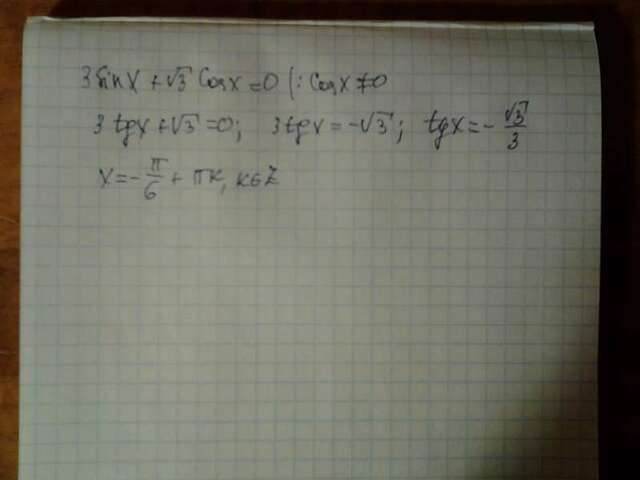 3 sin x + √3 cos x = 0 | : cos x ≠ 0
3 tg x + √3 = 0; 3 tg x = -√3; tg x = -√3/3
x = -π/6 + πк, к∈Z